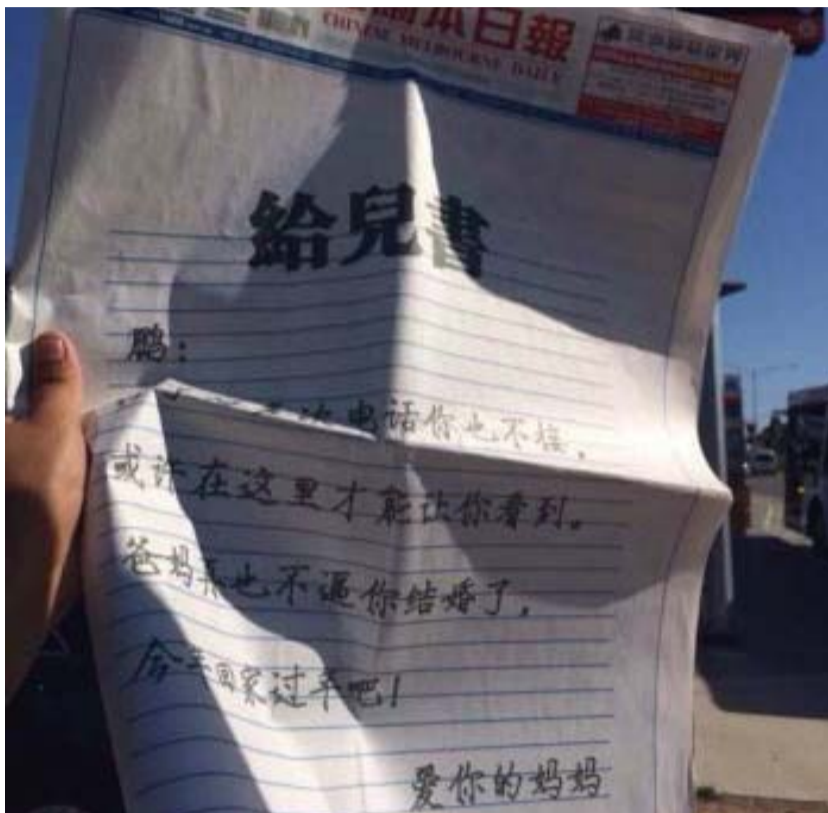 本日報
CHINESE MELBOURNE DAILY
給兒書
鹏：
次电话你也不接，
或许在这里才能让你看到。
爸妈再也不逼你结婚了，
今年回家过年吧！
爱你的妈妈